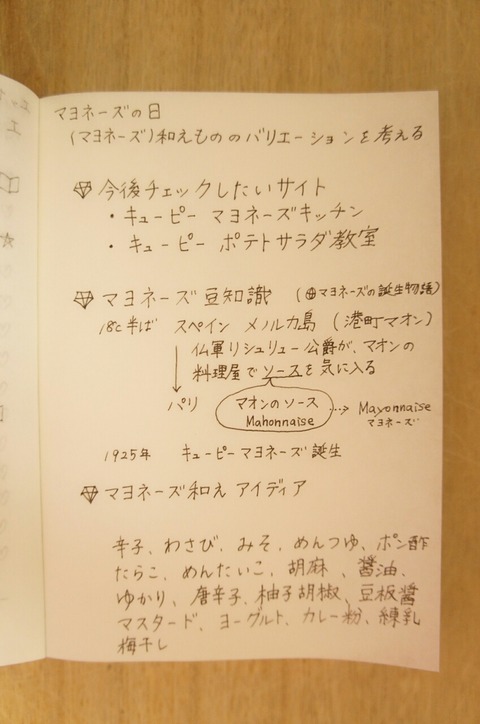 マヨネーズの日
(マヨネーズ)和えもののバリエーションを考える
今後チェックしたいサイト
・キューピー マヨネーズキッチン
・キューピー ポテトサラダ教室
マヨネーズ豆知識 (マヨネーズの誕生物語)
18c半ば スペイン メノルカ島 (港町マオン)
仏軍リシュリュー公爵が、マオンの
料理屋でソースを気に入る
パリ マオンのソース Mahonnaise … Mayonnaise マヨネーズ
1925年 キューピーマヨネーズ誕生
マヨネーズ和え アイディア
辛子、わさび、みそ、めんつゆ、ポン酢
たらこ、めんたいこ、胡麻、醤油、
ゆかり、唐辛子、柚子胡椒、豆板醤
マスタード、ヨーグルト、カレー粉、練乳
梅干し